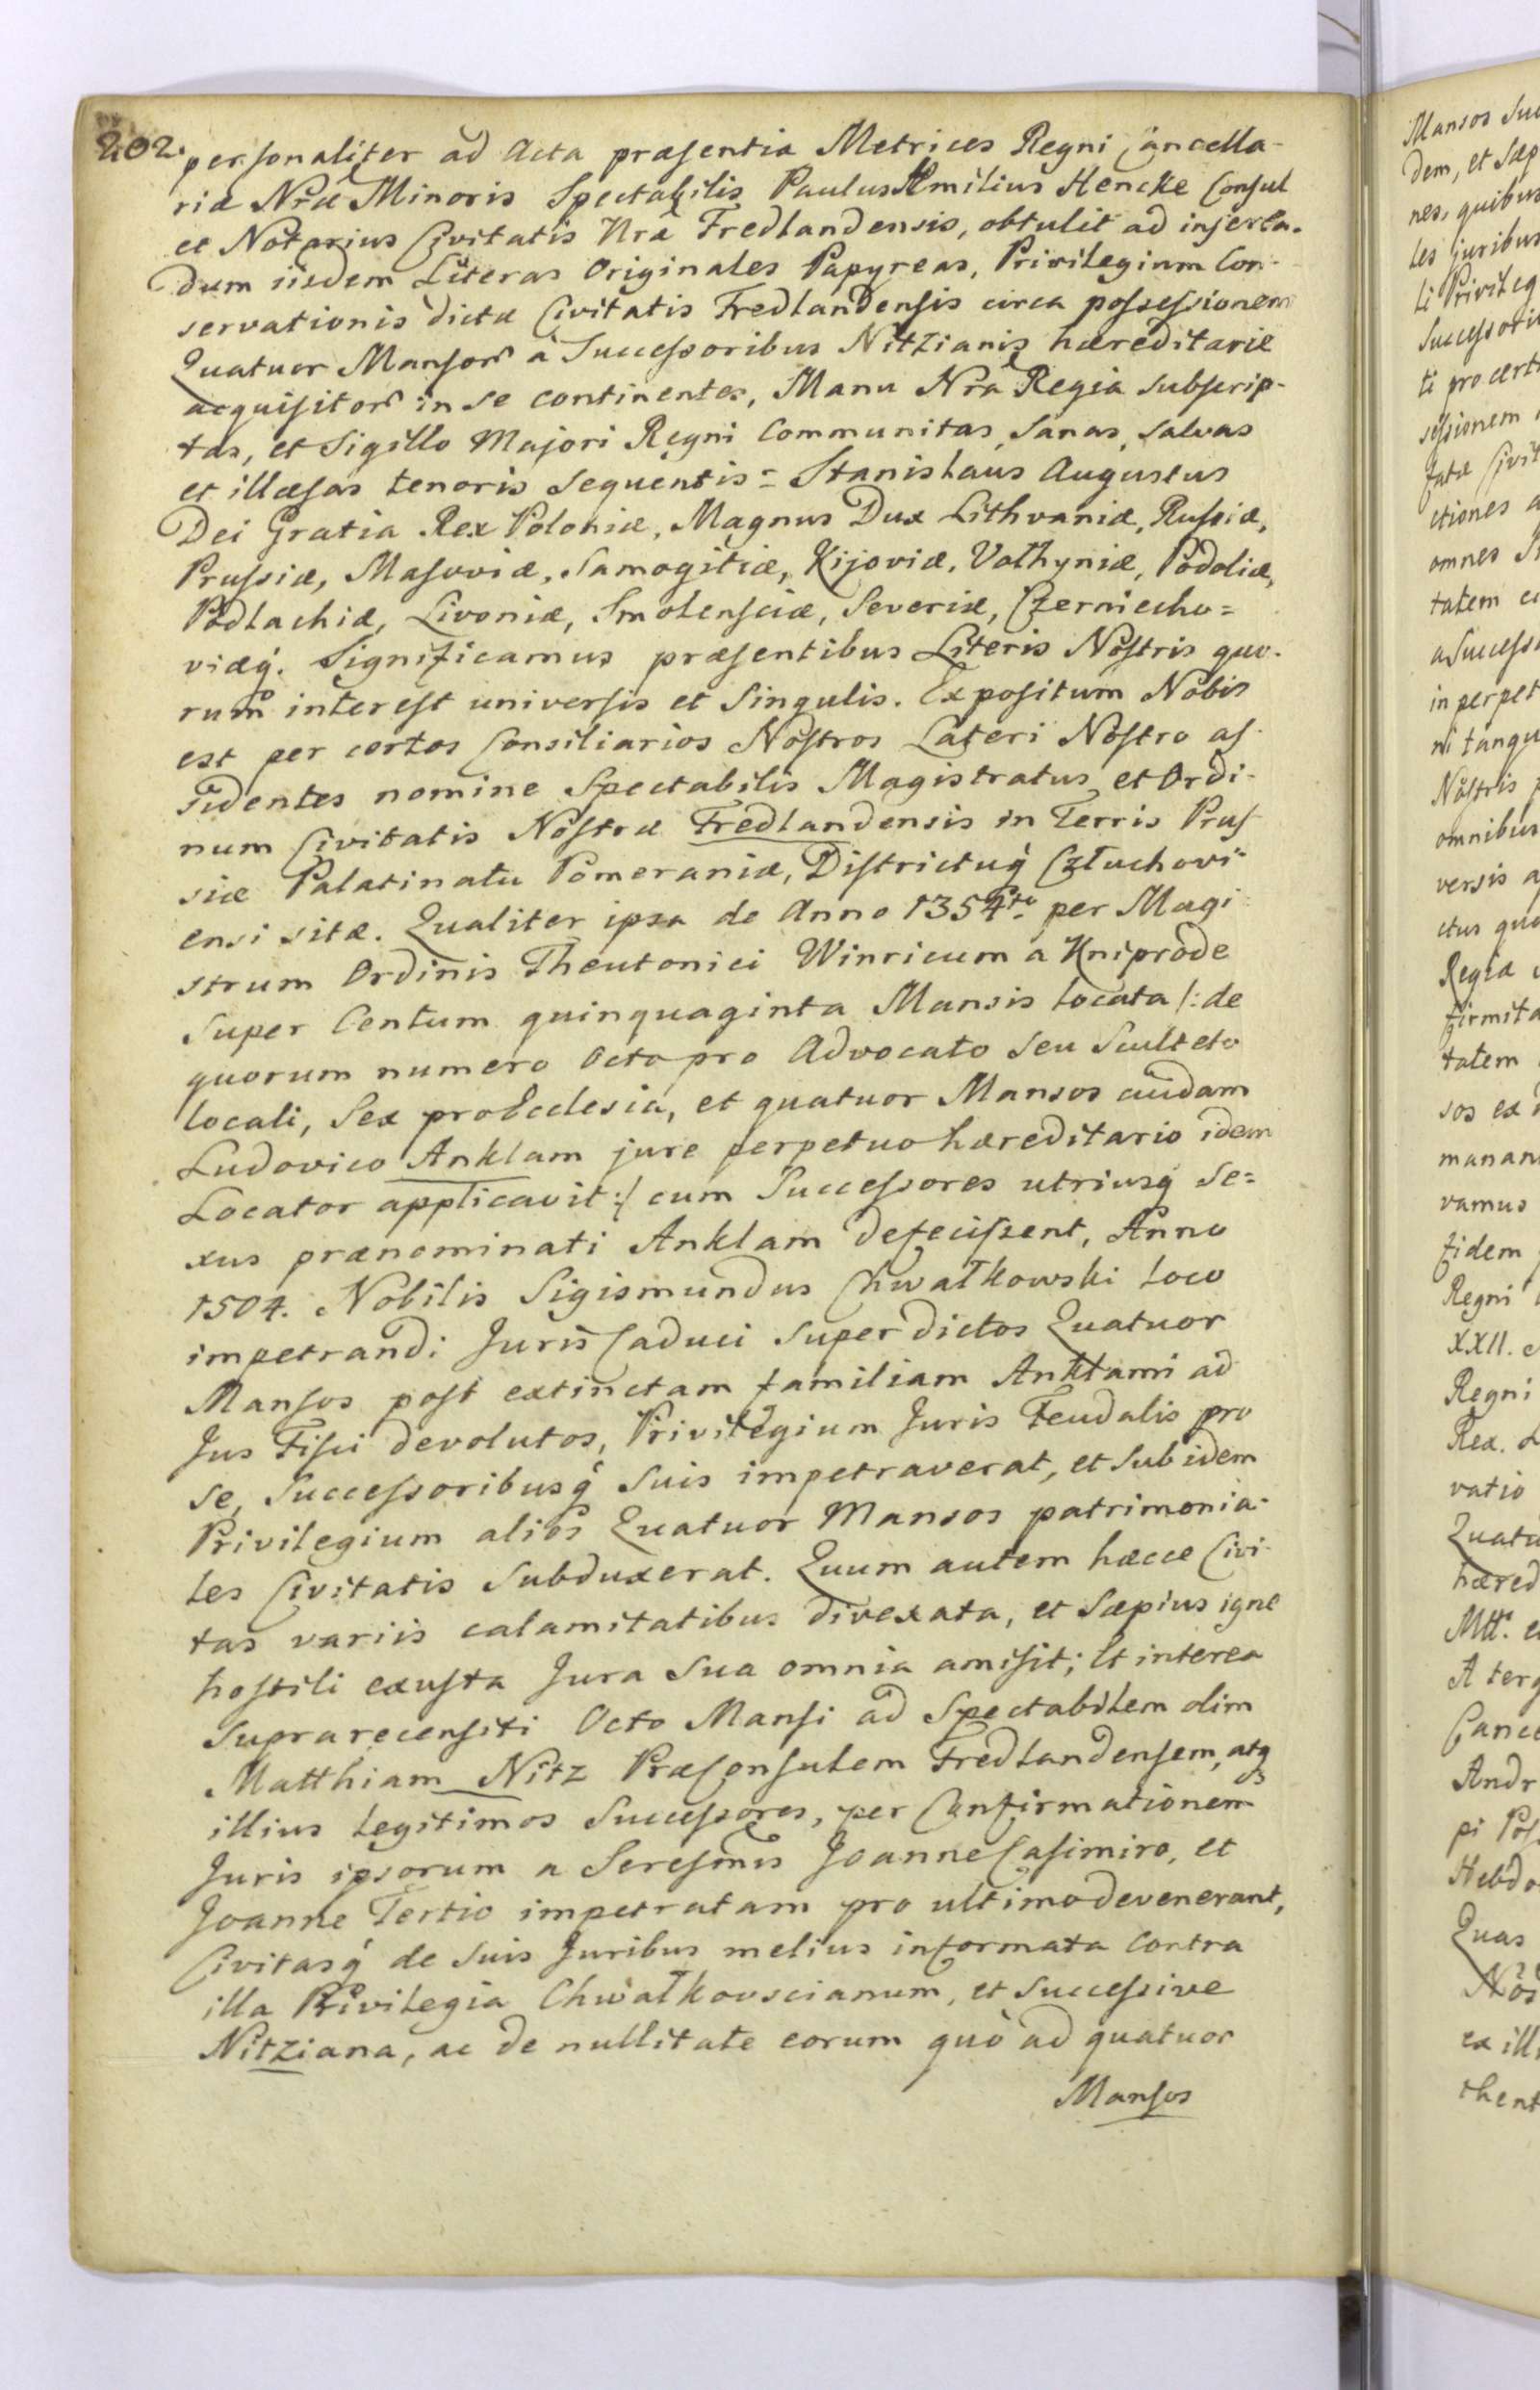 202. personaliter ad Acta præsentia Metrices Regni Cancella-
riæ Nræ Minoris Spectabilis Paulus Æmilius Hencke Consul
et Notarius Civitatis Nræ Fredlandensis, obtulit ad inserEn-
dum iisdem Literas Originales Papyreas, Privilegium Con-
servationis dictæ Civitatis Fredlandensis circa possessionem
Quatuor Mansorũ à Successoribus Nitzianis hæreditarie
acquisitorũ in se continentes, Manu Nrã Regia subscrip-
tas, et Sigillo Majori Regni Communitas, Sanas, Salvas
et illæsas tenoris sequentis = Stanislaus Augustus
Dei Gratia Rex Poloniæ, Magnus Dux Lithvaniæ, Russiæ,
Prussiæ, Masoviæ, Samogitiæ, Kijoviæ, Volhyniæ, Podoliæ,
Podlachiæ, Livoniæ, Smolensciæ, Severiæ, Czerniecho=
viæq́. Significamus præsentibus Literis Nostris quo-
rum interest universis et Singulis. Expositum Nobis
est per certos Consiliarios Nostros Lateri Nostro as-
sidentes nomine Spectabilis Magistratus et Ordi-
num Civitatis Nostræ Fredlandensis in Terris Prus
siæ Palatinatu Pomeraniæ, Districtuq́ Człuchovi-
ensi sitæ. Qualiter ipsa de Anno 1354to per Magi-
strum Ordinis Theutonici Winricum a Kniprode
super Centum quinquaginta Mansis locata /: de
quorum numero Octo pro Advocato seu Sculteto
locali, Sex pro Ecclesia, et quatuor Mansos cuidam
Ludovico Anklam jure perpetuo hæreditario idem
Locator applicavit :/ cum Successores utriusq́ Se=
xus prænominati Anklam defecissent, Anno
1504. Nobilis Sigismundus Chwałkowski loco
impetrandi Juris Caduci super dictos Quatuor
Mansos post extinctam familiam Anklami ad
Jus Fisci devolutos, Privilegium Juris Feudalis pro
se, Successoribusq́ Suis impetraverat, et sub idem
Privilegium alios Quatuor Mansos patrimonia-
les Civitatis subduxerat. Quum autem hæcce Civi-
tas variis calamitatibus divexata, et sæpius igne
hostili exusta Jura Sua omnia amisit; Et interea
suprarecensiti Octo Mansi ad Spectabilem olim
Matthiam Nitz Præconsulem Fredlandensem, atq
illius legitimos Successores, per Confirmationem
Juris ipsorum a Seresmis Joanne Casimiro, et
Joanne Tertio impetratam pro ultimo devenerant,
Civitasq́ de Suis Juribus melius informata Contra
illa Privilegia Chwałkovscianum, et Successive
Nitziana, ac de nullitate eorum quò ad quatuor
Mansos
Mansos
dem, et sæp
nes, quibus
les juribus
li Privileg
Successori
ti pro cert
sessionem
fatæ Civit
ctiones a
omnes
tatem
a Successo
in perpet
ni tanqu
Nostris
omnibus
versis a
ctus quo
Regia
firmita
tatem
sos ex
manan
vamus
fidem
Regni
XXII.
Regni
Rex.
vatio
Quatu
hæred
Mtt.
A terg
Cance
Andr
pi Pos
Hebdo
Quas
Nos
ex ill
thent